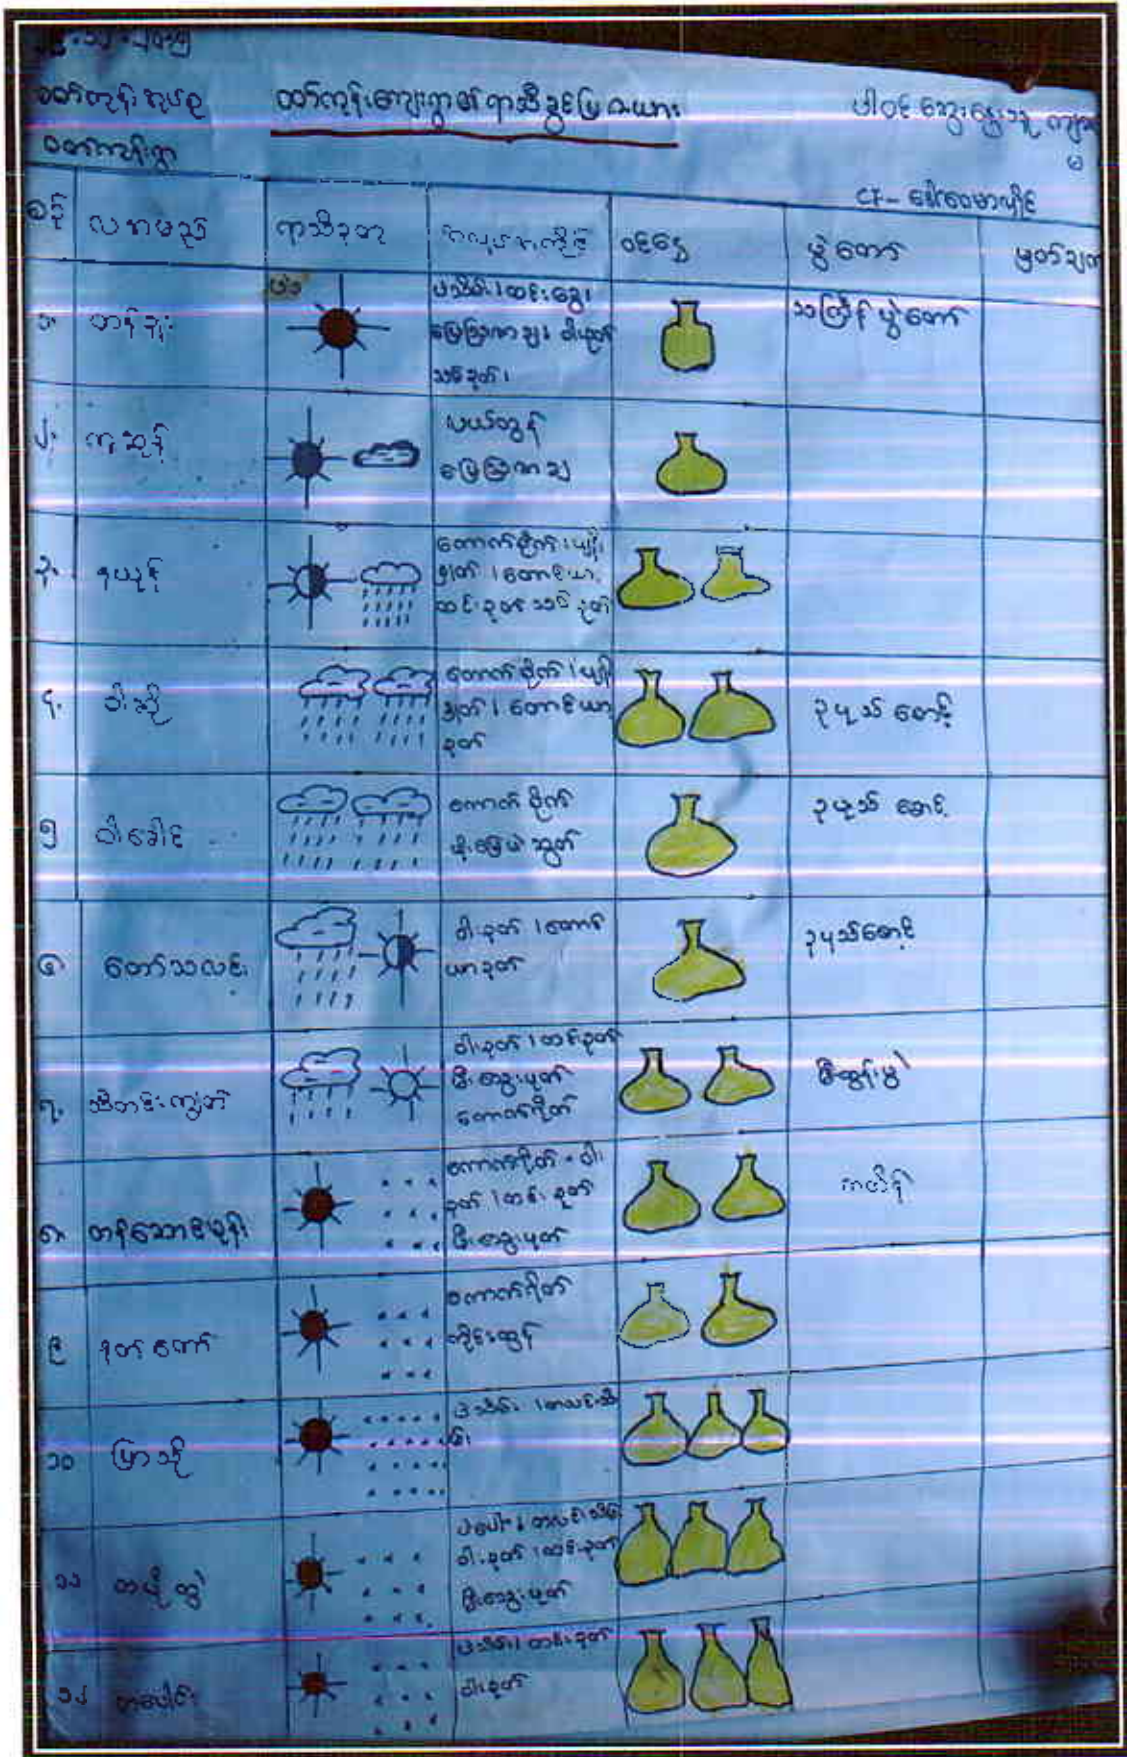 ဝတ်ကုန်းကျေးရွာ၏ ရာသီခွင်ပြ ဇယား
ဝတ်ကုန်းရွာ
စဉ် လအမည် ရာသီဥတု အလုပ်အကိုင် ဝင်ငွေ ပွဲတော် မှတ်ချက်
၁။ တန်ခူး
ပဲသိမ်း၊ ထင်းခွေ၊
မြေဩဇာချ၊ ဝါးခုတ်
သစ်ခုတ်၊
သင်္ကြန် ပွဲတော်
၂။ ကဆုန်
ပယ်ထွန်
မြေဩဇာချ
၃။ နယုန်
ကောက်စိုက်၊ ပျိုး
နုတ်၊ တောင်ယာ
ထင်းခုတ် သစ်ခုတ်
၄။ ဝါဆို
ကောက်စိုက်၊ ပျိုး
နုတ်၊ တောင်ယာ
ခုတ်
ဥပုသ် စောင့်
၅ ဝါခေါင်
ကောက် စိုက်
မိုးမြေပဲ နွှတ်
ဥပုသ် စောင့်
၆။ တော်သလင်း
ဝါးခုတ်၊ တောင်
ယာခုတ်
ဥပုသ်စောင့်
၇။ သီတင်းကျွတ်
ဝါးခုတ်၊ ထင်းခုတ်
မီးသွေးဖုတ်
ကောက်ရိတ်
မီးထွန်းပွဲ
၈။ တန်ဆောင်မုန်း
ကောက်ရိတ်၊ ဝါး
ခုတ်၊ ထင်းခုတ်
မီးသွေးဖုတ်
ကထိန်
၉ နတ်တော်
ကောက်ရိတ်
၁၀ ပြာသို
၁၁ တပို့တွဲ
ဝါးခုတ်၊ ထင်းခုတ်
မီးသွေးဖုတ်
၁၂ တပေါင်း
ပဲသိမ်း၊ ထင်းခုတ်
ဝါးခုတ်